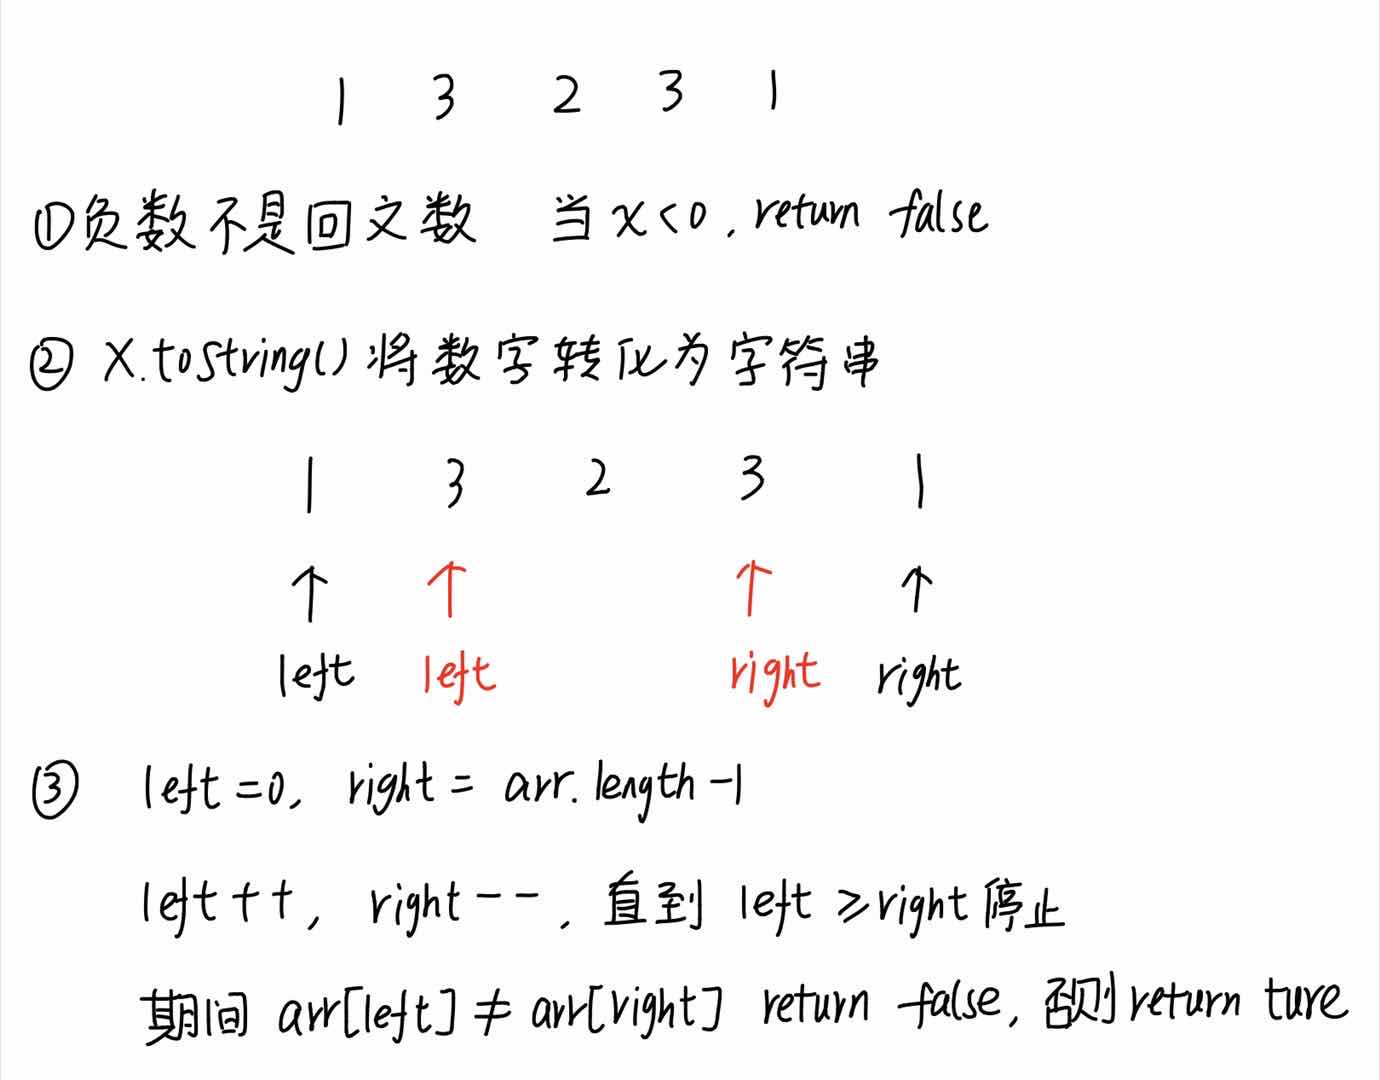 1 3 2 3 1
①负数不是回文数 当x<0，return false
② X.toString()将数字转化为字符串
1 3 2 3 1
↑ ↑ ↑ ↑
left left right right
③ left=0, right= arr.length-1
left++, right--，直到 left≥right停止
期间 arr[left]≠arr[right] return false，否则return ture